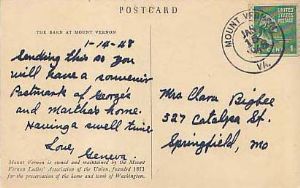 POSTCARD
THE BARN AT MOUNT VERNON
1-14-48
Sending this so you
will have a souvenir
Postmark of George's
and Martha's home.
Having a swell time
Love,
Geneva.
Mount Vernon is owned and maintained by the Mount
Vernon Ladies' Association of the Union, founded 1853
for the preservation of the home and tomb of Washington.
MOUNT VERNON
JAN
VA.
Mrs Clara Bigbee
527 Catalpa St.
Springfield, Mo